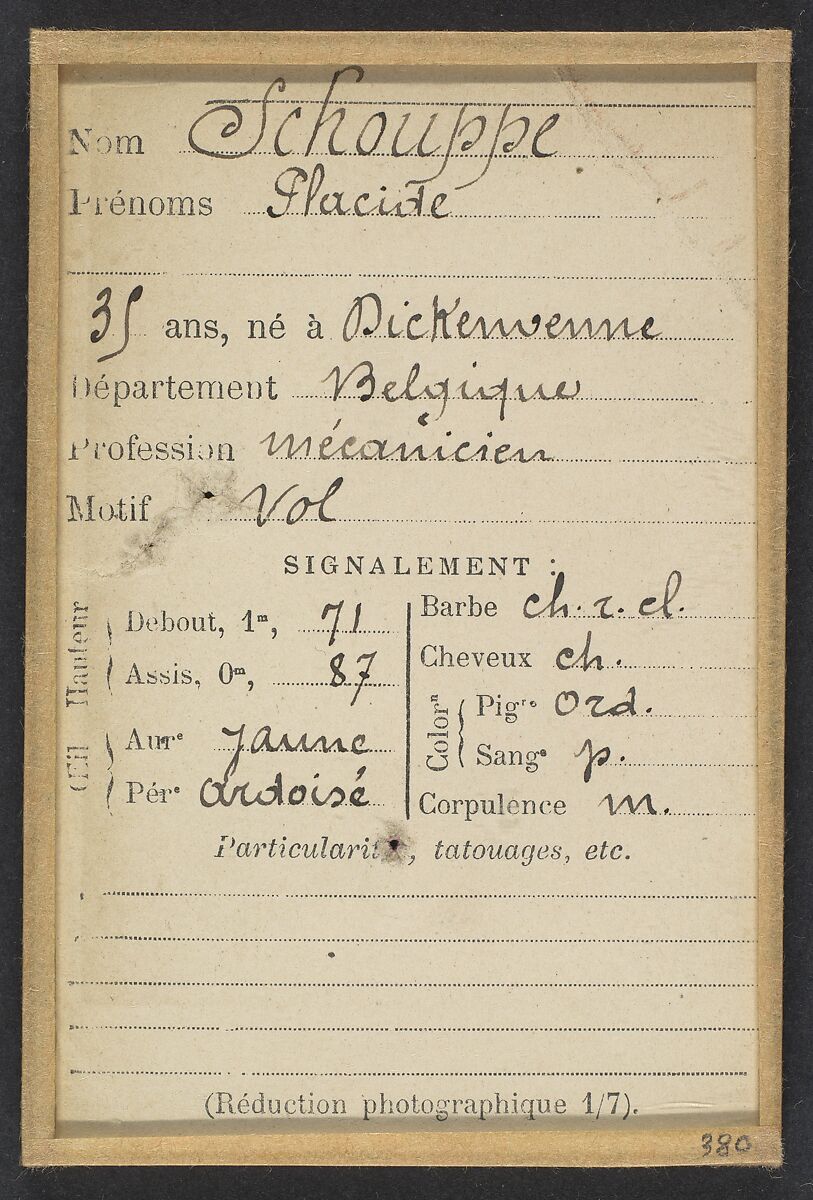 Nom Schouppe
Prénoms Placide
35 ans, né à Dickenvenne
Département Belgique
Profession mécanicien
Motif Vol
SIGNALEMENT :
Hauteur
Debout, 1m, 71
Assis, 0m, 87
Œil
Aure jaune
Pére ardoisé
Barbe ch. r. cl.
Cheveux ch.
Colorn
Pigre Ord.
Sange p.
Corpulence m.
Particularités, tatouages, etc.
(Réduction photographique 1/7).
380